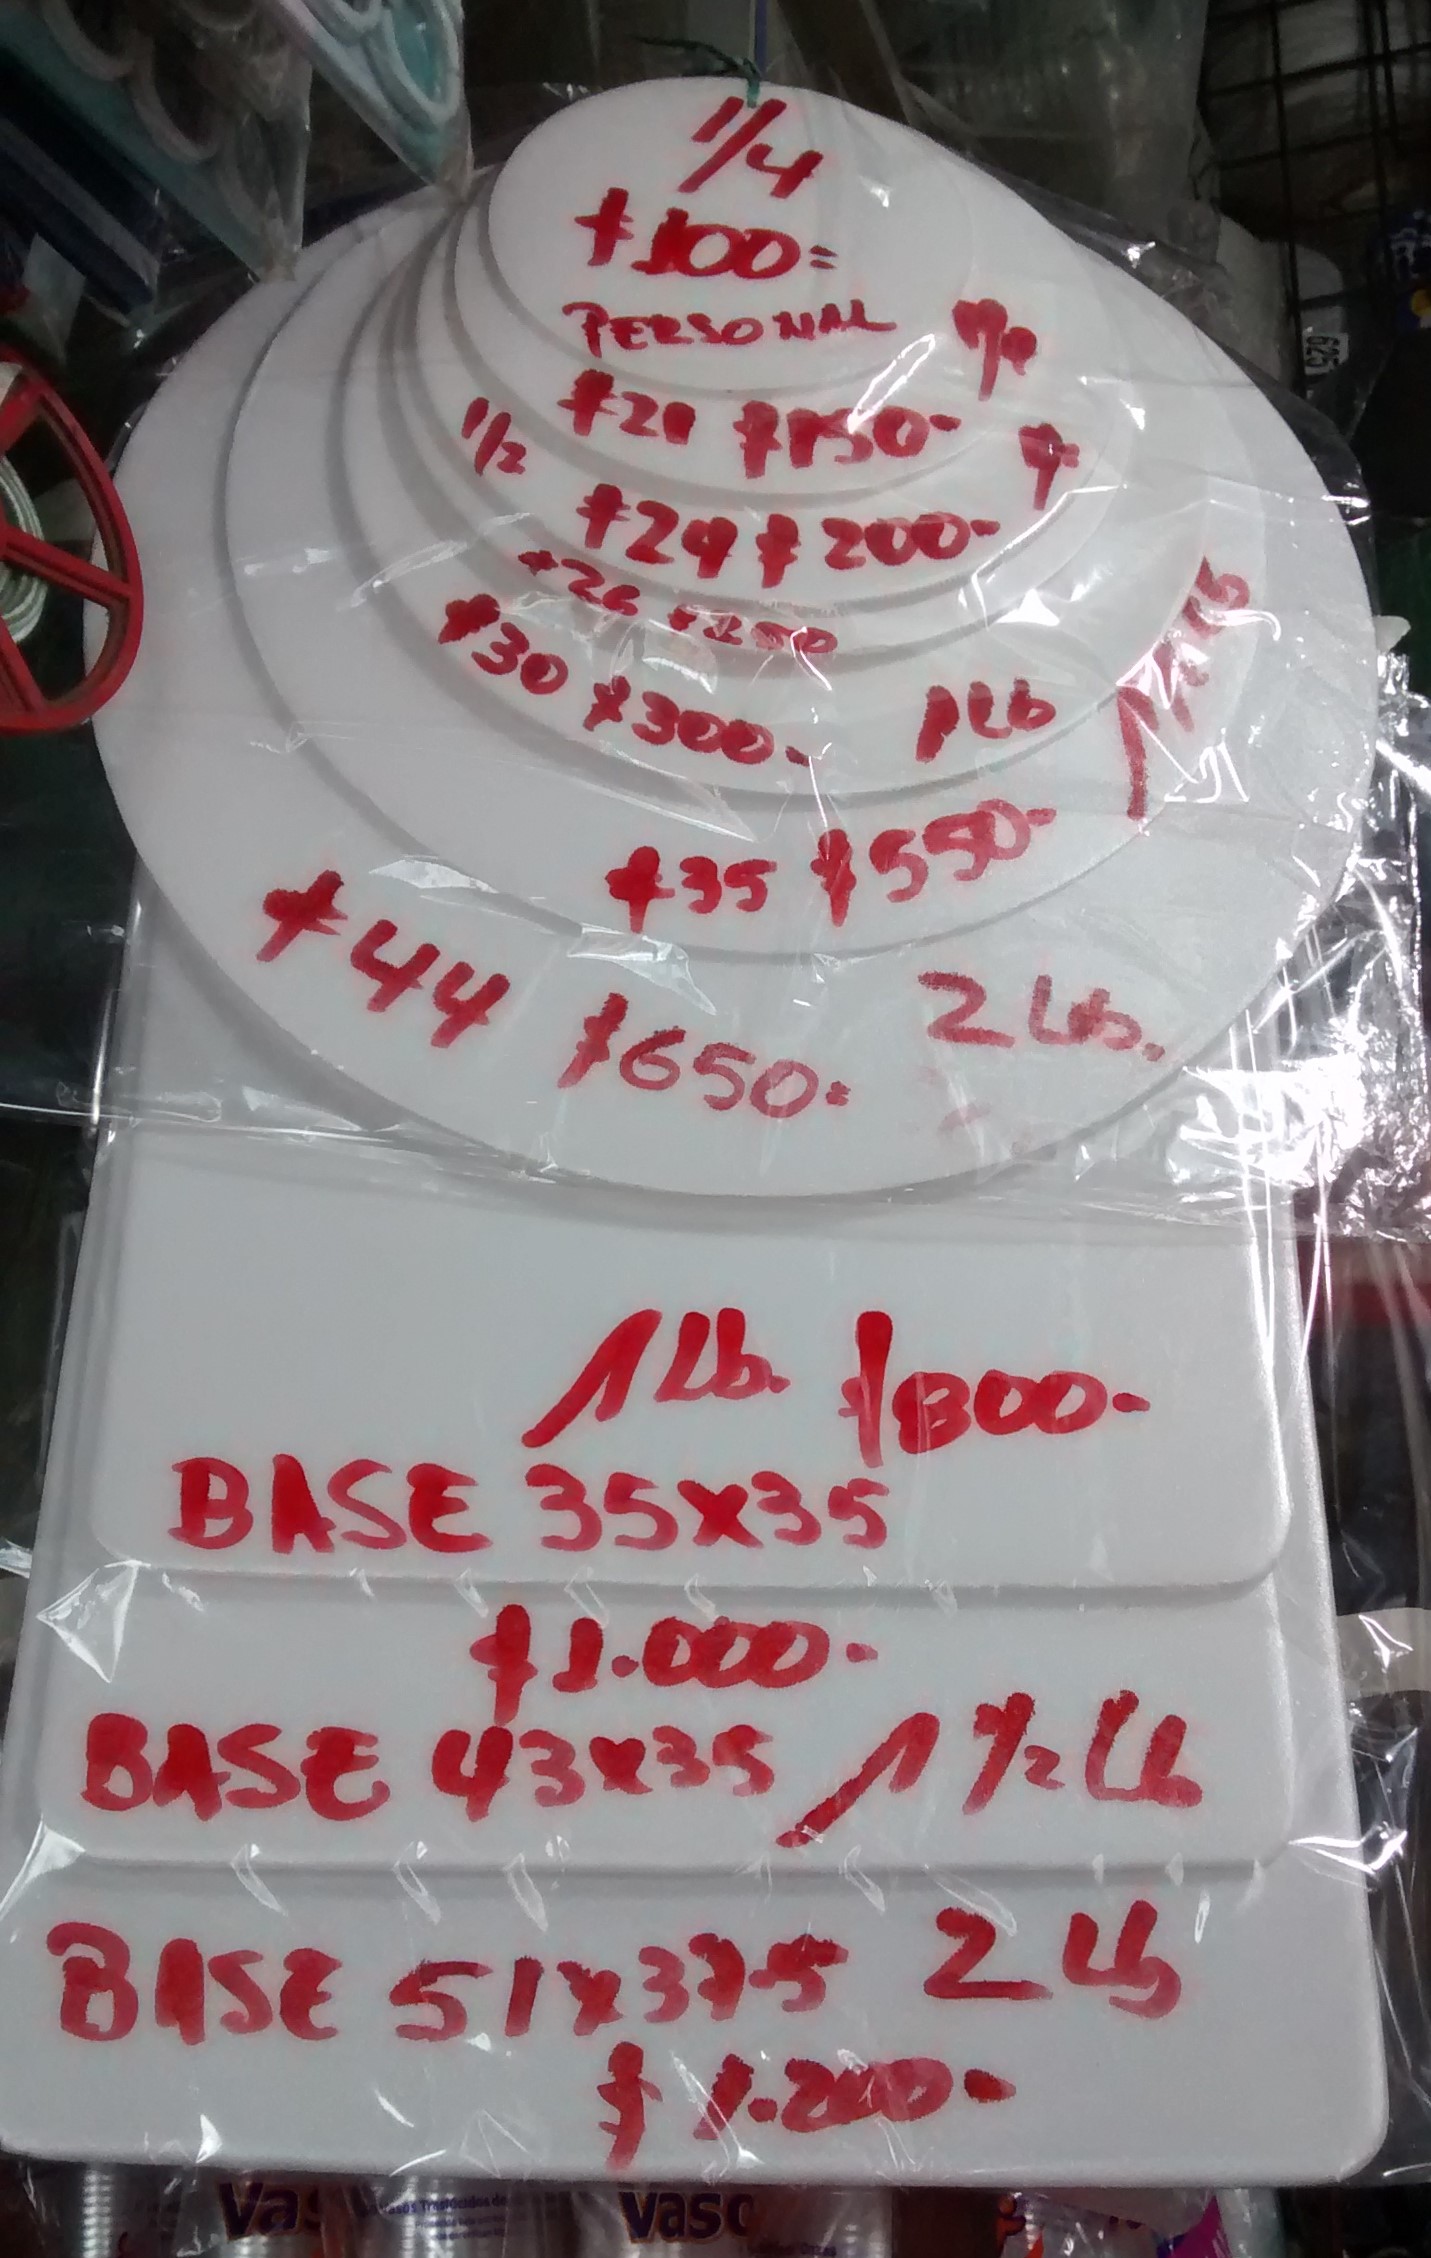 1/4
$100=
PERSONAL
#21 $150-
1/2
#24 $200-
#26 $250
#30 $300- 1 Lb
#35 $550-
#44 $650= 2 Lb.
1 Lb. $800-
BASE 35x35
$1.000-
BASE 43x35 1 1/2 Lb
BASE 51x37.5 2 Lb
$1.200-
Vaso